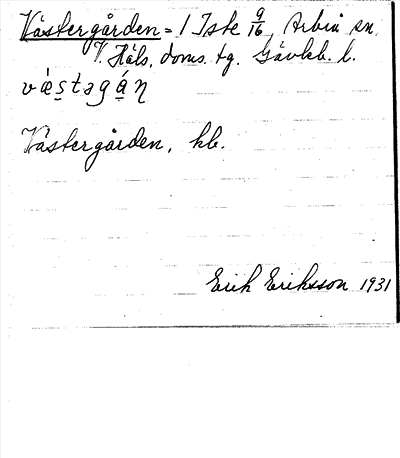 Västergården = 1 Iste 9/16, Arbrå sn.
V. Häls. doms. tg. Gävleb. l.
væstəgán
Västergården, kb.
Erik Eriksson 1931